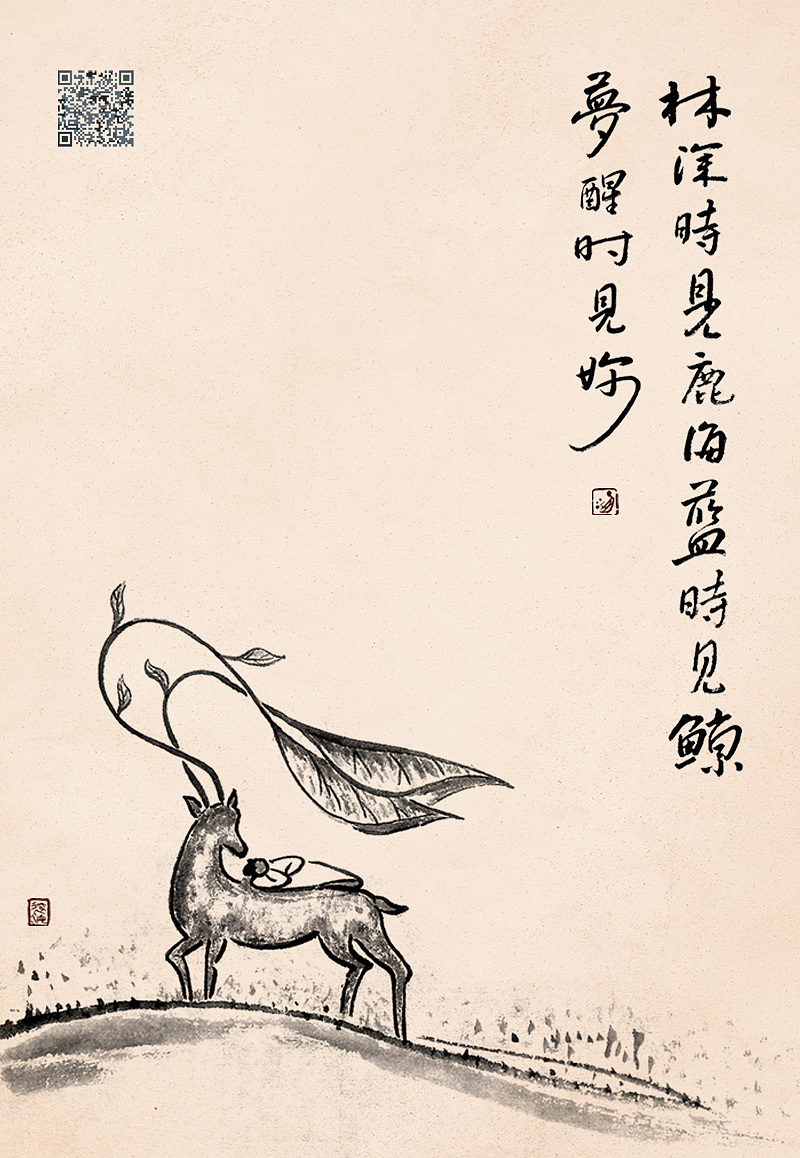 林深時見鹿海藍時見鯨
夢醒时見妳